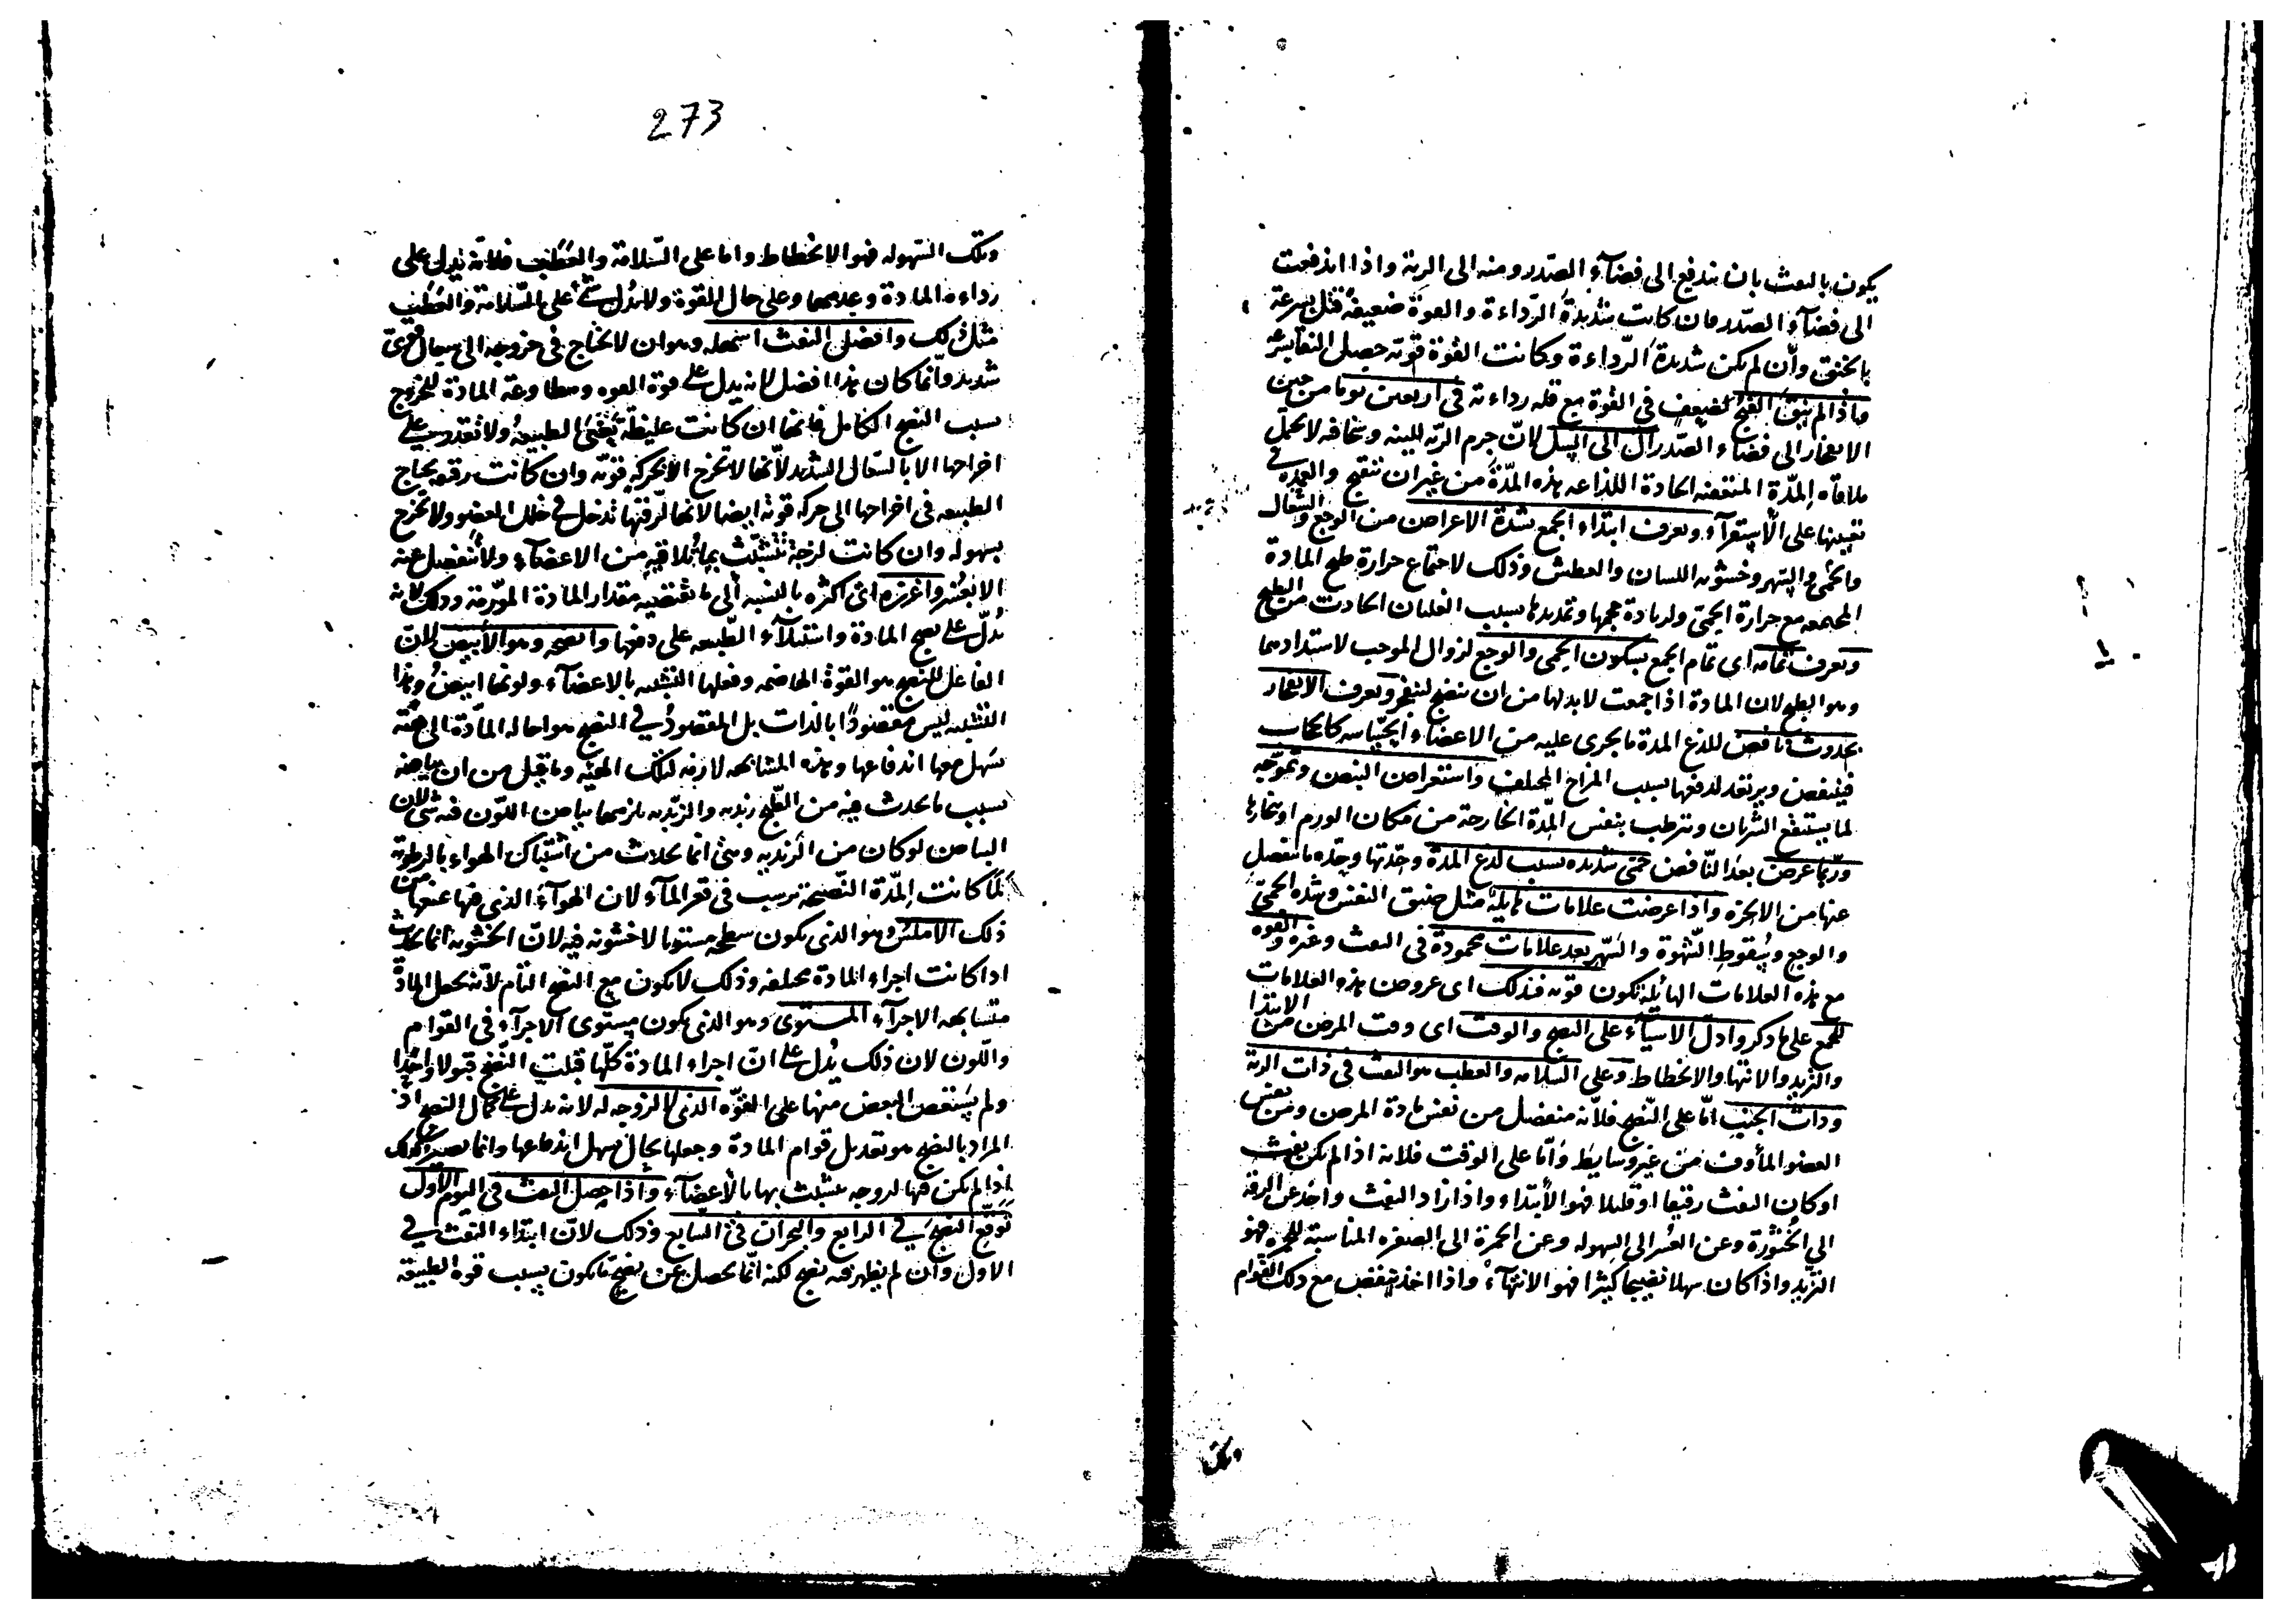 يكون بالنفث بان تندفع الى فضآء الصدر ومنه الى الرية واذا اندفعت
الى فضآء الصدر فان كانت شديدة الرداءة والقوة ضعيفة قتل بسرعة
بالخنق وان لم يكن شديدة الرداءة وكانت القوة قوية حصل النفا بسرعة
واذا لم ينق القيح لضعف في القوة مع قلة رداءته في اربعين يوما من حين
الانفجار الى فضاء الصدر ال الى السل لان جرم الرية للينه وسخافه لا يحتمل
ملاقاة المدة المتعفنه الحادة اللذاعه هذه المدة من غير ان تتقيح والعمدة في
تعيينها على الاستقرآء ويعرف ابتداء الجمع بشدة الاعراض من الوجع والسعال
والحمى والسهر وخشونه اللسان والعطش وذلك لاجتماع حرارة طبخ المادة
المجتمعه مع حرارة الحمى ولزيادة حجمها وتمديدها بسبب الغليان الحادث من الطبخ
ويعرف تمامه اى تمام الجمع بسكون الحمى والوجع لزوال الموجب لاشتدادهما
وهو الطبخ لان المادة اذا جمعت لا بد لها من ان تنضج لتنفجر ويعرف الانفجار
بحدوث نافض للذع المدة ما يجرى عليه من الاعضاء الحساسه كالحجاب
فينتفض ويرتعد لدفعها بسبب المزاج المختلف واستعراض النبض وتموجه
لما يستنقع الشريان ويترطب بنفس المدة الخارجة من مكان الورم او بخارها
وربما عرض بعد النافض حمى شديده بسبب لذع المدة وحدتها وحده ما تنفصل
عنها من الابخره واذا عرضت علامات هايلة مثل ضيق النفس وشده الحمى
والوجع وسقوط الشهوة والسهر بعد علامات محمودة في النفث وغيره والقوه
مع هذه العلامات الهايلة تكون قوية فذلك اى عروض هذه العلامات
للجمع على ما ذكر وادل الاشيآء على النضج والوقت اى وقت المرض من الابتدا
والتزيد والانتها والانحطاط وعلى السلامه والعطب هو النفث في ذات الرية
وذات الجنب اما على النضج فلانه منفصل من نفس مادة المرض ومن نفس
العضو المأوف من غير وسايط واما على الوقت فلانه اذا لم يكن نفث
او كان النفث رقيقا او قليلا فهو الابتداء واذا زاد النفث واخذ عن الرقة
الى الخثورة وعن العسر الى السهوله وعن الحمرة الى الصفره المناسبة للحمرة فهو
التزيد واذا كان سهلا نضيجا كثيرا فهو الانتهآء واذا اخذ ينقص مع ذلك القوام
وتلك
273
وتلك السهوله فهو الانحطاط واما على السلامة والعطب فلانه يدل على
رداءه المادة وعدمها وعلى حال القوة ولا يدل شئ على السلامة والعطب
مثل ذلك وافضل النفث اسهله وهو ان لا يحتاج في خروجه الى سعال قوى
شديد وانما كان هذا افضل لانه يدل على قوة القوه ومطاوعة المادة للخروج
بسبب النضج الكامل فانها ان كانت غليظة الطبيعة ولا تقدر على
اخراجها الا بالسعال الشديد لانها لا تخرج الا بحركه قويه وان كانت رقيقه يحتاج
الطبيعه في اخراجها الى حركه قوية ايضا لانها لرقتها تدخل في خلل العضو ولا تخرج
بسهوله وان كانت لزجة تتشبث بما تلاقيه من الاعضآء ولا تنفصل عنه
الا بعسر واغزره اى اكثره بالنسبه الى ما تقتضيه مقدار المادة المورمة وذلك لانه
يدل على نضج المادة واستيلآء الطبيعه على دفعها وانضجه وهو الابيض لان
الفاعل للنضج هو القوة الهاضمه وفعلها التشبه بالاعضآء ولونها ابيض وهذا
التشبه ليس مقصودا بالذات بل المقصود في النضج هو احاله المادة الى هيئة
يسهل معها اندفاعها وهذه المشابهه لازمه لتلك الهيئه وما قيل من ان بياضه
بسبب ما يحدث فيه من الطبخ زبديه والزبديه يلزمها بياض اللون ففيه شئ لان
البياض لو كان من الزبديه وهى انما تحدث من اشتباك الهواء بالرطوبة
لما كانت المدة النضيجة ترسب في قعر المآء لان الهوآء الذى فيها يمنعها من
ذلك الاملس وهو الذى يكون سطحه مستويا لا خشونه فيه لان الخشونه انما تحدث
اذا كانت اجزاء المادة مختلفه وذلك لا يكون مع النضج التام لانه يجعل المادة
متشابهه الاجزآء المستوى وهو الذى يكون مستوى الاجزآء في القوام
واللون لان ذلك يدل على ان اجزاء المادة كلها قبلت النضج قبولا واحدا
ولم يستعص البعض منها على القوه الذى لا لزوجه له لانه يدل على كمال النضج اذ
المراد بالنضج هو تعديل قوام المادة وجعلها بحال يسهل اندفاعها وانما تصير كذلك
اذا لم يكن فيها لزوجه يتشبث بها بالاعضآء واذا حصل النفث في اليوم الاول
توقع النضج في الرابع والبحران في السابع وذلك لان ابتداء النفث في
الاول وان لم يظهر فيه نضج لكنه انما يحصل عن نضج ما يكون بسبب قوة الطبيعة